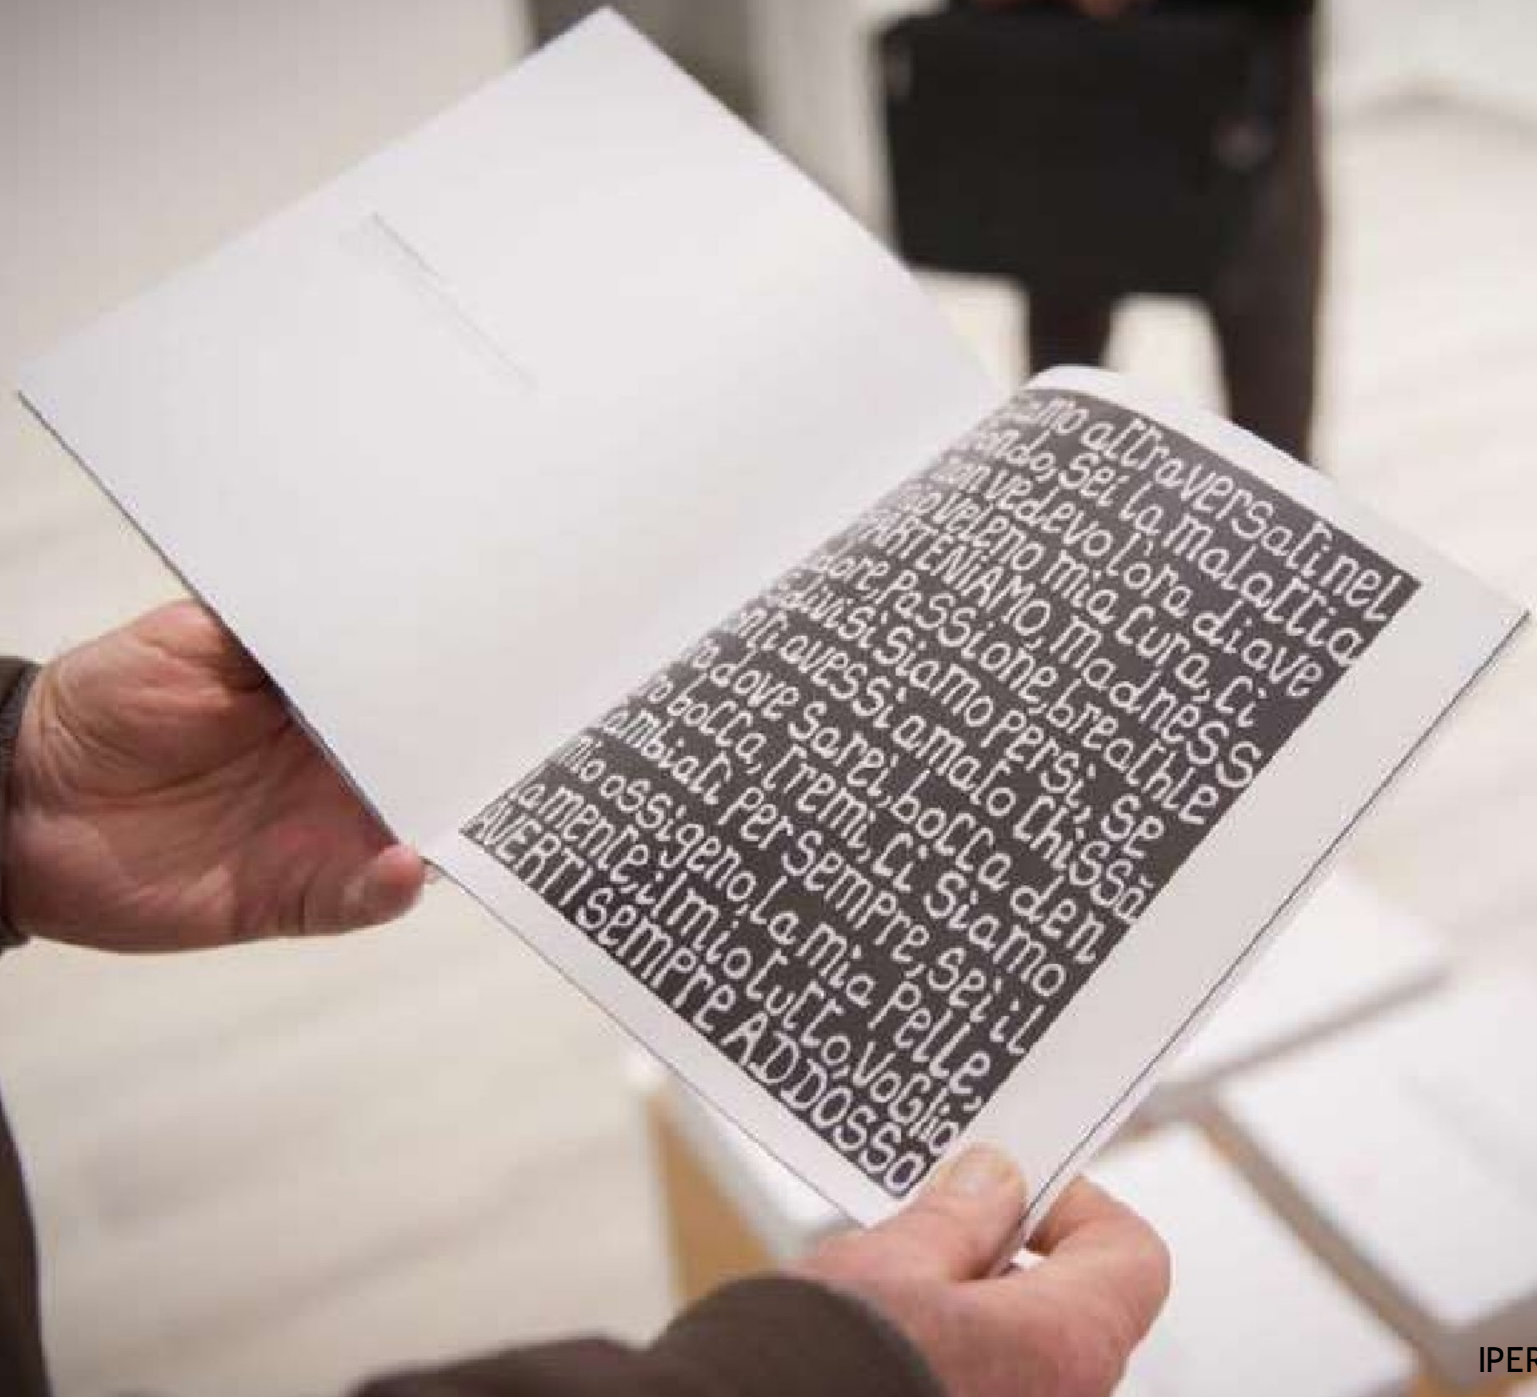 attraversati nel
sei la malattia
non vedevo l'ora di ave
veleno mia cura, ci
PARTENiAMO, madness
Passione, breathle
divisi siamo persi, se
avessi amato chissà
dove sarei, bocca den
bocca, tremi, ci siamo
cambiati per sempre, sei il
mio ossigeno, la mia pelle,
la mente, il mio tutto, voglio
AVERTI sempre ADDOSSO
IPER